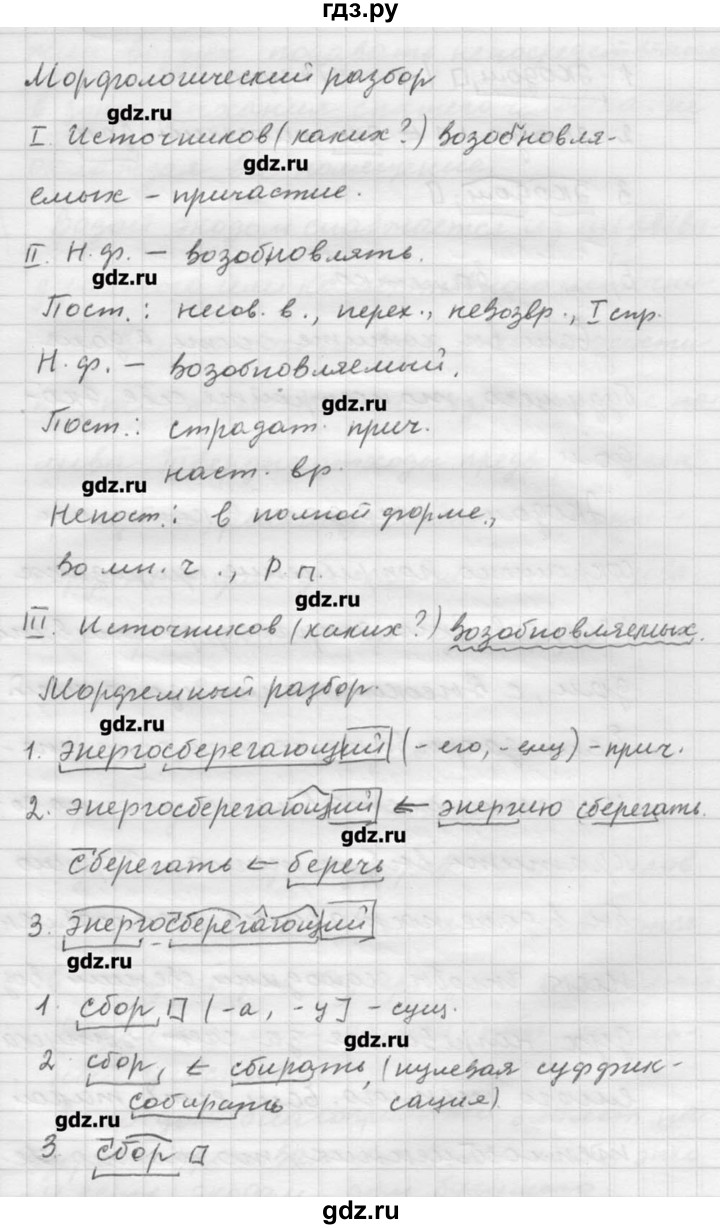 гдз.ру
Морфологический разбор
gdz.ru
I. Источников (каких?) возобновля-
gdz.ru
емых – причастие.
II. Н.ф. – возобновлять.
gdz.ru
Пост.: несов. в., перех., невозвр., I спр.
Н.ф. – возобновляемый.
gdz.ru
Пост.: страдат. прич.
наст. вр.
gdz.ru
Непост.: в полной форме.,
во мн. ч., Р.п.
gdz.ru
III. Источников (каких?) возобновляемых.
Морфемный разбор.
gdz.ru
1. энергосберегающий (-его, -ему) – прич.
2. энергосберегающий ← энергию сберегать.
gdz.ru
сберегать ← беречь
3. энергосберегающий
gdz.ru
1. сбор (-а, -у] – сущ.
gdz.ru
2 сбор, ← сбирать, (нулевая суффик-
собирать сация).
gdz.ru
3. сбор
gdz.ru